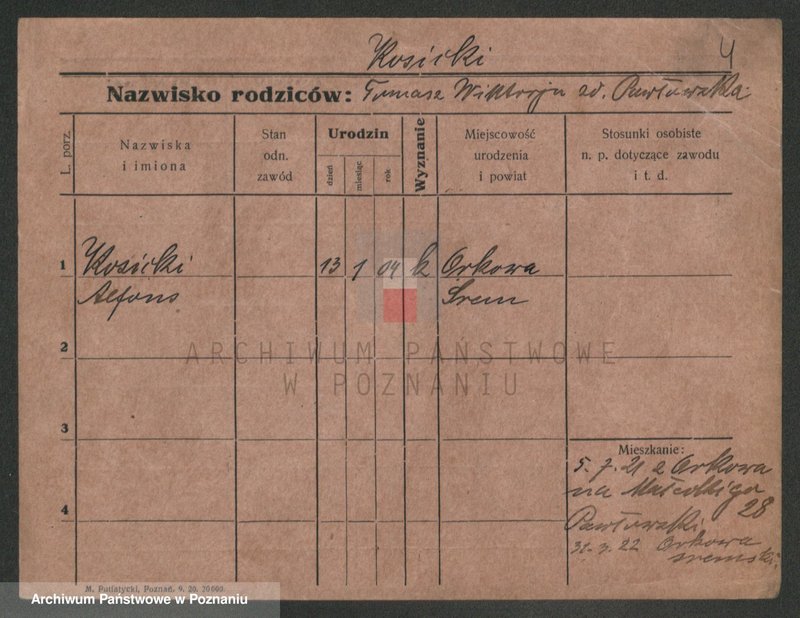 Kosicki
4
Nazwisko rodziców: Tomasz Wiktorja zd. Pawłowska
L. porz.
Nazwiska
i imiona
Stan
odn.
zawód
Urodzin
dzień
miesiąc
rok
Wyznanie
Miejscowość
urodzenia
i powiat
Stosunki osobiste
n. p. dotyczące zawodu
i t. d.
1 Kosicki 13 1 04 k Orkowa
Alfons Śrem
2
ARCHIWUM PAŃSTWOWE
W POZNANIU
3
Mieszkanie:
5. 7. 21 z Orkowa
na
28
4
Pawłowski
22 Orkowa
sremski
M. Putiatycki, Poznań. 9. 20. 20000.
Archiwum Państwowe w Poznaniu